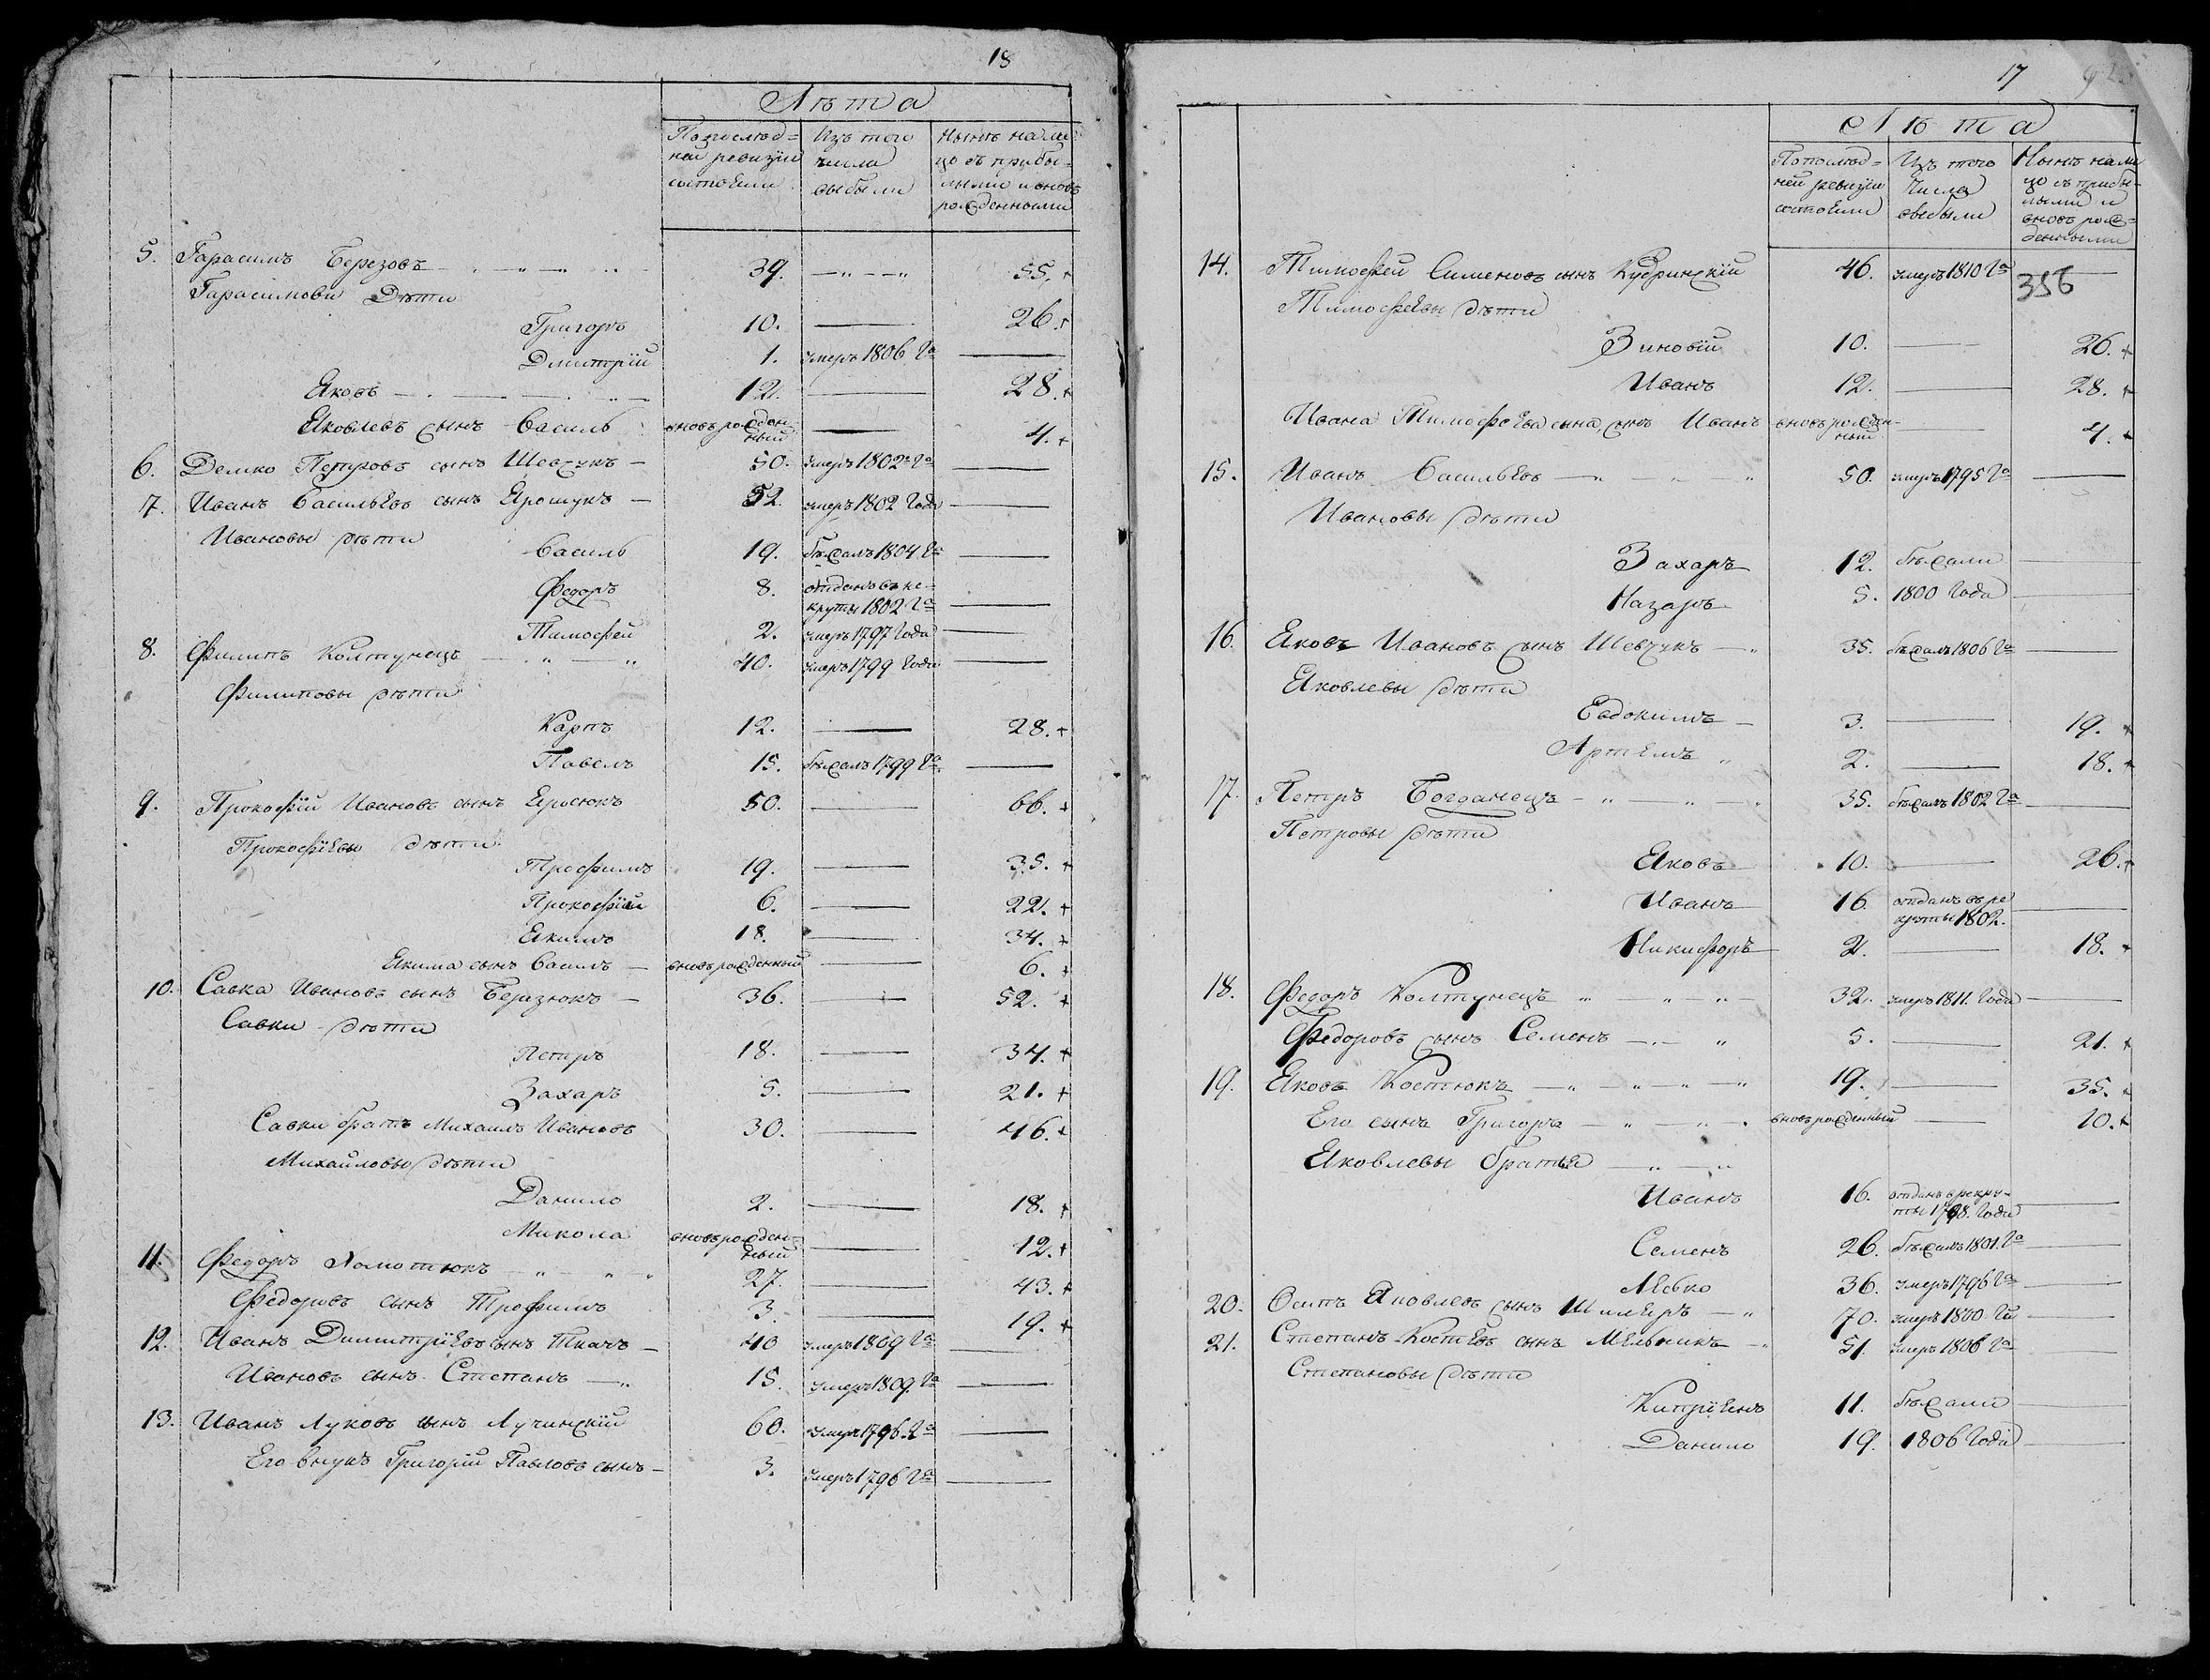 18
Лѣта
По послѣд=
ней ревизіи
состояли
Изъ того
числа
выбыли
Нынѣ на ли
цо съ прибы=
лыми и вновь
рожденными
5. Гарасимъ Березовъ 39. 55.
Гарасимови Дѣти
Григоръ 10. 26.
Дмитрій 1. умеръ 1806 го
Яковъ 12. 28.
Яковлевъ сынъ Василь вновь рожден
ный 4.
6. Демко Петровъ сынъ Шевчукъ 50. умеръ 1802го го
7. Иванъ Васильевъ сынъ Ярошукъ 52. умеръ 1802 года
Ивановы дѣти
Василь 19. бѣжалъ 1804 го
Федоръ 8. отданъ в ре=
круты 1802 го
Тимофей 2. умеръ 1797 года
8. Филипъ Колтунецъ 40. умеръ 1799 года
Филиповы дѣти
Карпъ 12. 28.
Павелъ 15. бѣжалъ 1799 го
9. Прокофій Ивановъ сынъ Яросюкъ 50. 66.
Прокофіевы дѣти
Трофимъ 19. 35.
Прокофій 6. 22.
Якимъ 18. 34.
Якима сынъ Василь вновь рожденный 6.
10. Савка Ивановъ сынъ Беразюкъ 36. 52.
Савки дѣти
Петръ 18. 34.
Захаръ 5. 21.
Савки братъ Михаилъ Ивановъ 30. 46.
Михайловы дѣти
Данило 2. 18.
Микола вновь рожден=
ный 12.
11. Федоръ Хомотюкъ 27. 43.
Федоровъ сынъ Трофимъ 3. 19.
12. Иванъ Димитріевъ сынъ Ткачъ 40 умеръ 1809 го
Ивановъ сынъ Степанъ 15. умеръ 1809. го
13. Иванъ Луковъ сынъ Лучинскій 60. умеръ 1796. го
Его внукъ Григорій Павловъ сынъ 3. умеръ 1796 го
17
92.
Лѣта
По послѣд=
ней ревизіи
состояли
Изъ того
числа
выбыли
Нынѣ на ли
цо съ прибы=
лыми и
вновь рож=
денными
14. Тимофей Сименовъ сынъ Кудринскій 46. умеръ 1810 го
356
Тимофѣевы дѣти
Зиновій 10. 26.
Иванъ 12. 28.
Ивана Тимофѣева сына, сынъ Иванъ вновь рожден=
ный 4.
15. Иванъ Васильевъ 50. умеръ 1795 го
Ивановы дѣти
Захаръ 12. бѣжали
Назаръ 5. 1800 года
16. Яковъ Ивановъ сынъ Шевчукъ 35. бѣжалъ 1806 го
Яковлевы дѣти
Евдокимъ 3. 19.
Артемъ 2. 18.
17. Петръ Богданецъ 35. бѣжалъ 1802 го
Петровы дѣти
Яковъ 10. 26.
Иванъ 16. отданъ въ ре
круты 1802.
Никифоръ 2. 18.
18. Федоръ Колтунецъ 32. умеръ 1811. года
Федоровъ сынъ Семенъ 5. 21.
19. Яковъ Костюкъ 19. 35.
Его сынъ Григоръ вновь рожденный 10.
Яковлевы братья
Иванъ 16. отданъ в рекру=
ты 1798. года
Семенъ 26. бѣжалъ 1801. го
Левко 36. умеръ 1796 го
20. Осипъ Яковлевъ сынъ Шилеръ 70. умеръ 1800. го
21. Степанъ Костевъ сынъ Мельникъ 51. умеръ 1806 го
Степановы дѣти
Кипріянъ 11. бѣжали
Данило 19. 1806 года